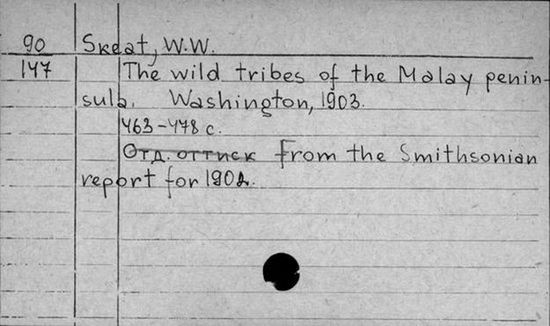 90 Skeat, W.W.
147 The wild tribes of the Malay penin-
sula. Washington, 1903.
463-478 с.
Отд. оттиск From the Smithsonian
report for 1902.